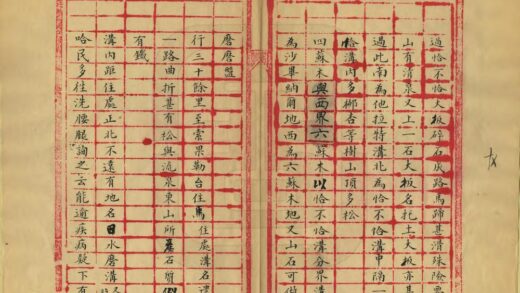 過恰不恰大板碎石戾路馬蹄甚滑殊險惡
山有清泉又上一石大板名托土大板亦甚
過此南為他拉特溝北為恰不恰溝中隔一
恰溝內多椰杏等樹山頂多松
四蘇木與西界六蘇木以恰不恰溝分界溝
為沙畢納爾地西為六蘇木地又山石可做
磨磨盤
行三十餘里至索果勒台住馬住處溝名禮
一路曲折甚有松與流泉東山所產石質似
有鐵
溝內距住處正北不遠有地名曰水磨溝又
哈民多往洗腰腿詢之云能逾疾病疑下有